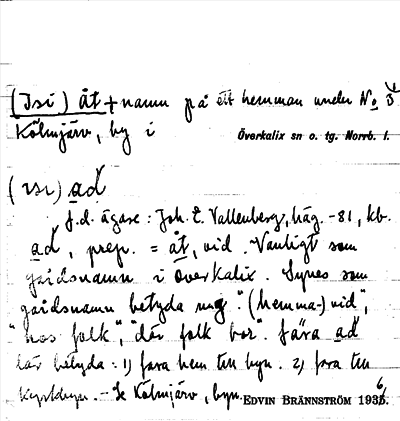 (Isi) åt + namn på ett hemman under No 3
Kölmjärv, by i
Överkalix sn o. tg. Norrb. l.
(isi) ad
f.d. ägare: Joh. E. Vallenberg, häg. -81, kb.
ad, prep. = åt, vid. Vanligt som
gårdsnamn i överkalix. Synes som
gårdsnamn betyda ung. "(hemma-) vid",
"hos folk", "där folk bor". fara ad
här betyda: 1) fara hem till byn. 2) fara till
kyrkbyn. - Se Kölmjärv, byn.
EDVIN BRÄNNSTRÖM 1936